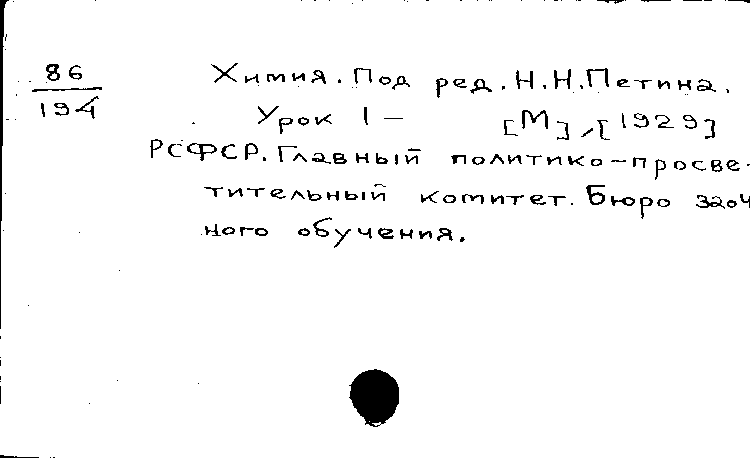 86
194
Химия. Под ред. Н.Н.Петина.
Урок 1 - [М], [1929]
РСФСР. Главный политико-просве-
тительный комитет. Бюро заоч
ного обучения.